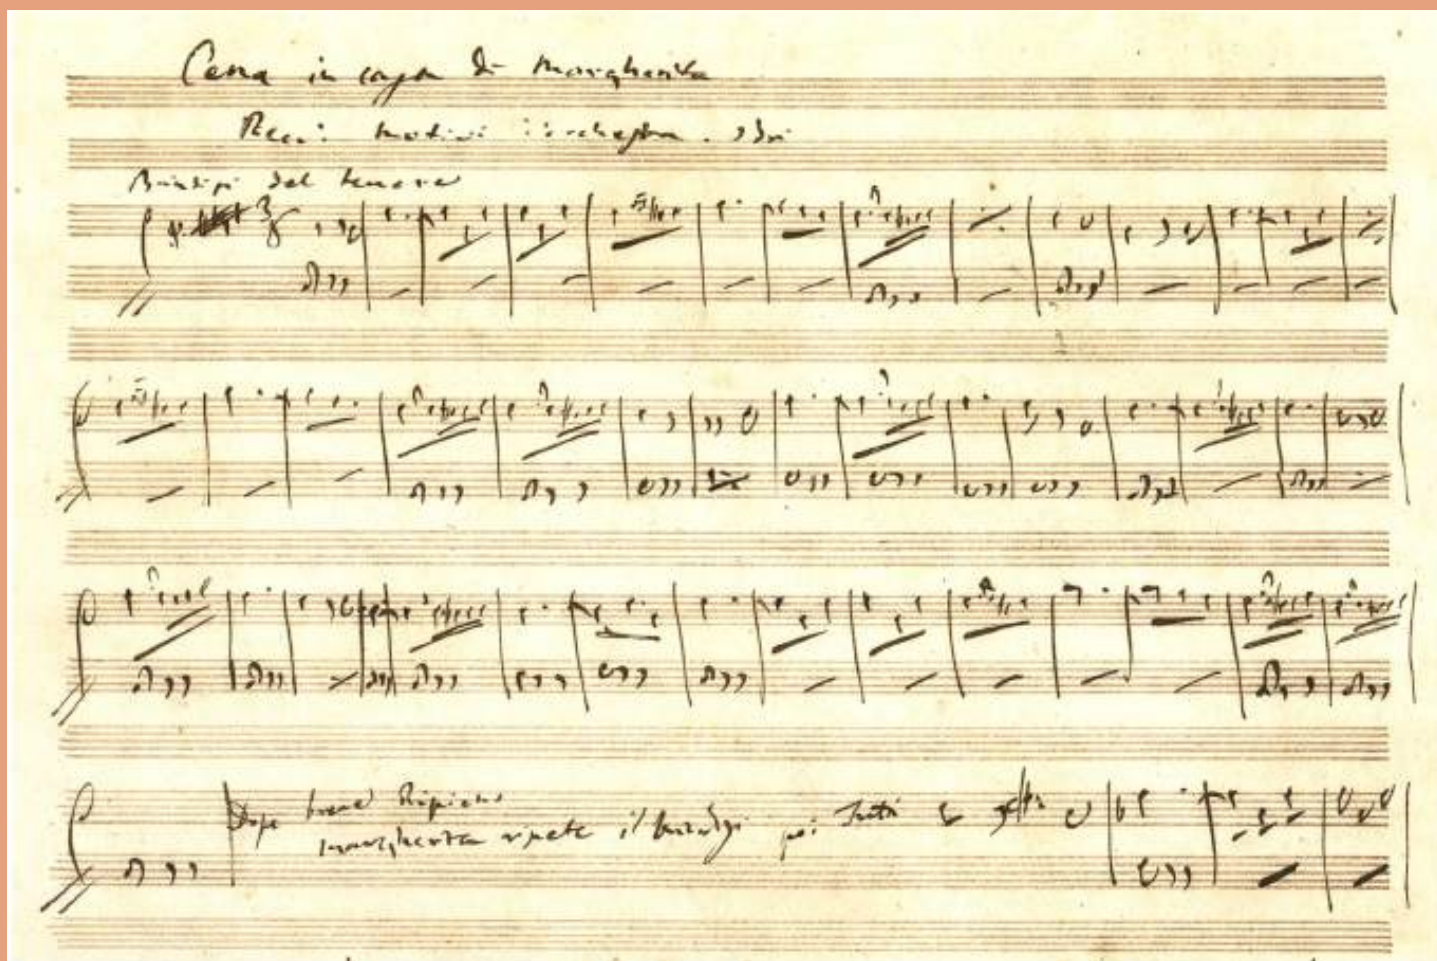 Cena in casa di Margherita
Reci: motivi
Brindisi del tenore
Dopo breve Ripieno
Margherita ripete il brindisi poi Tutti